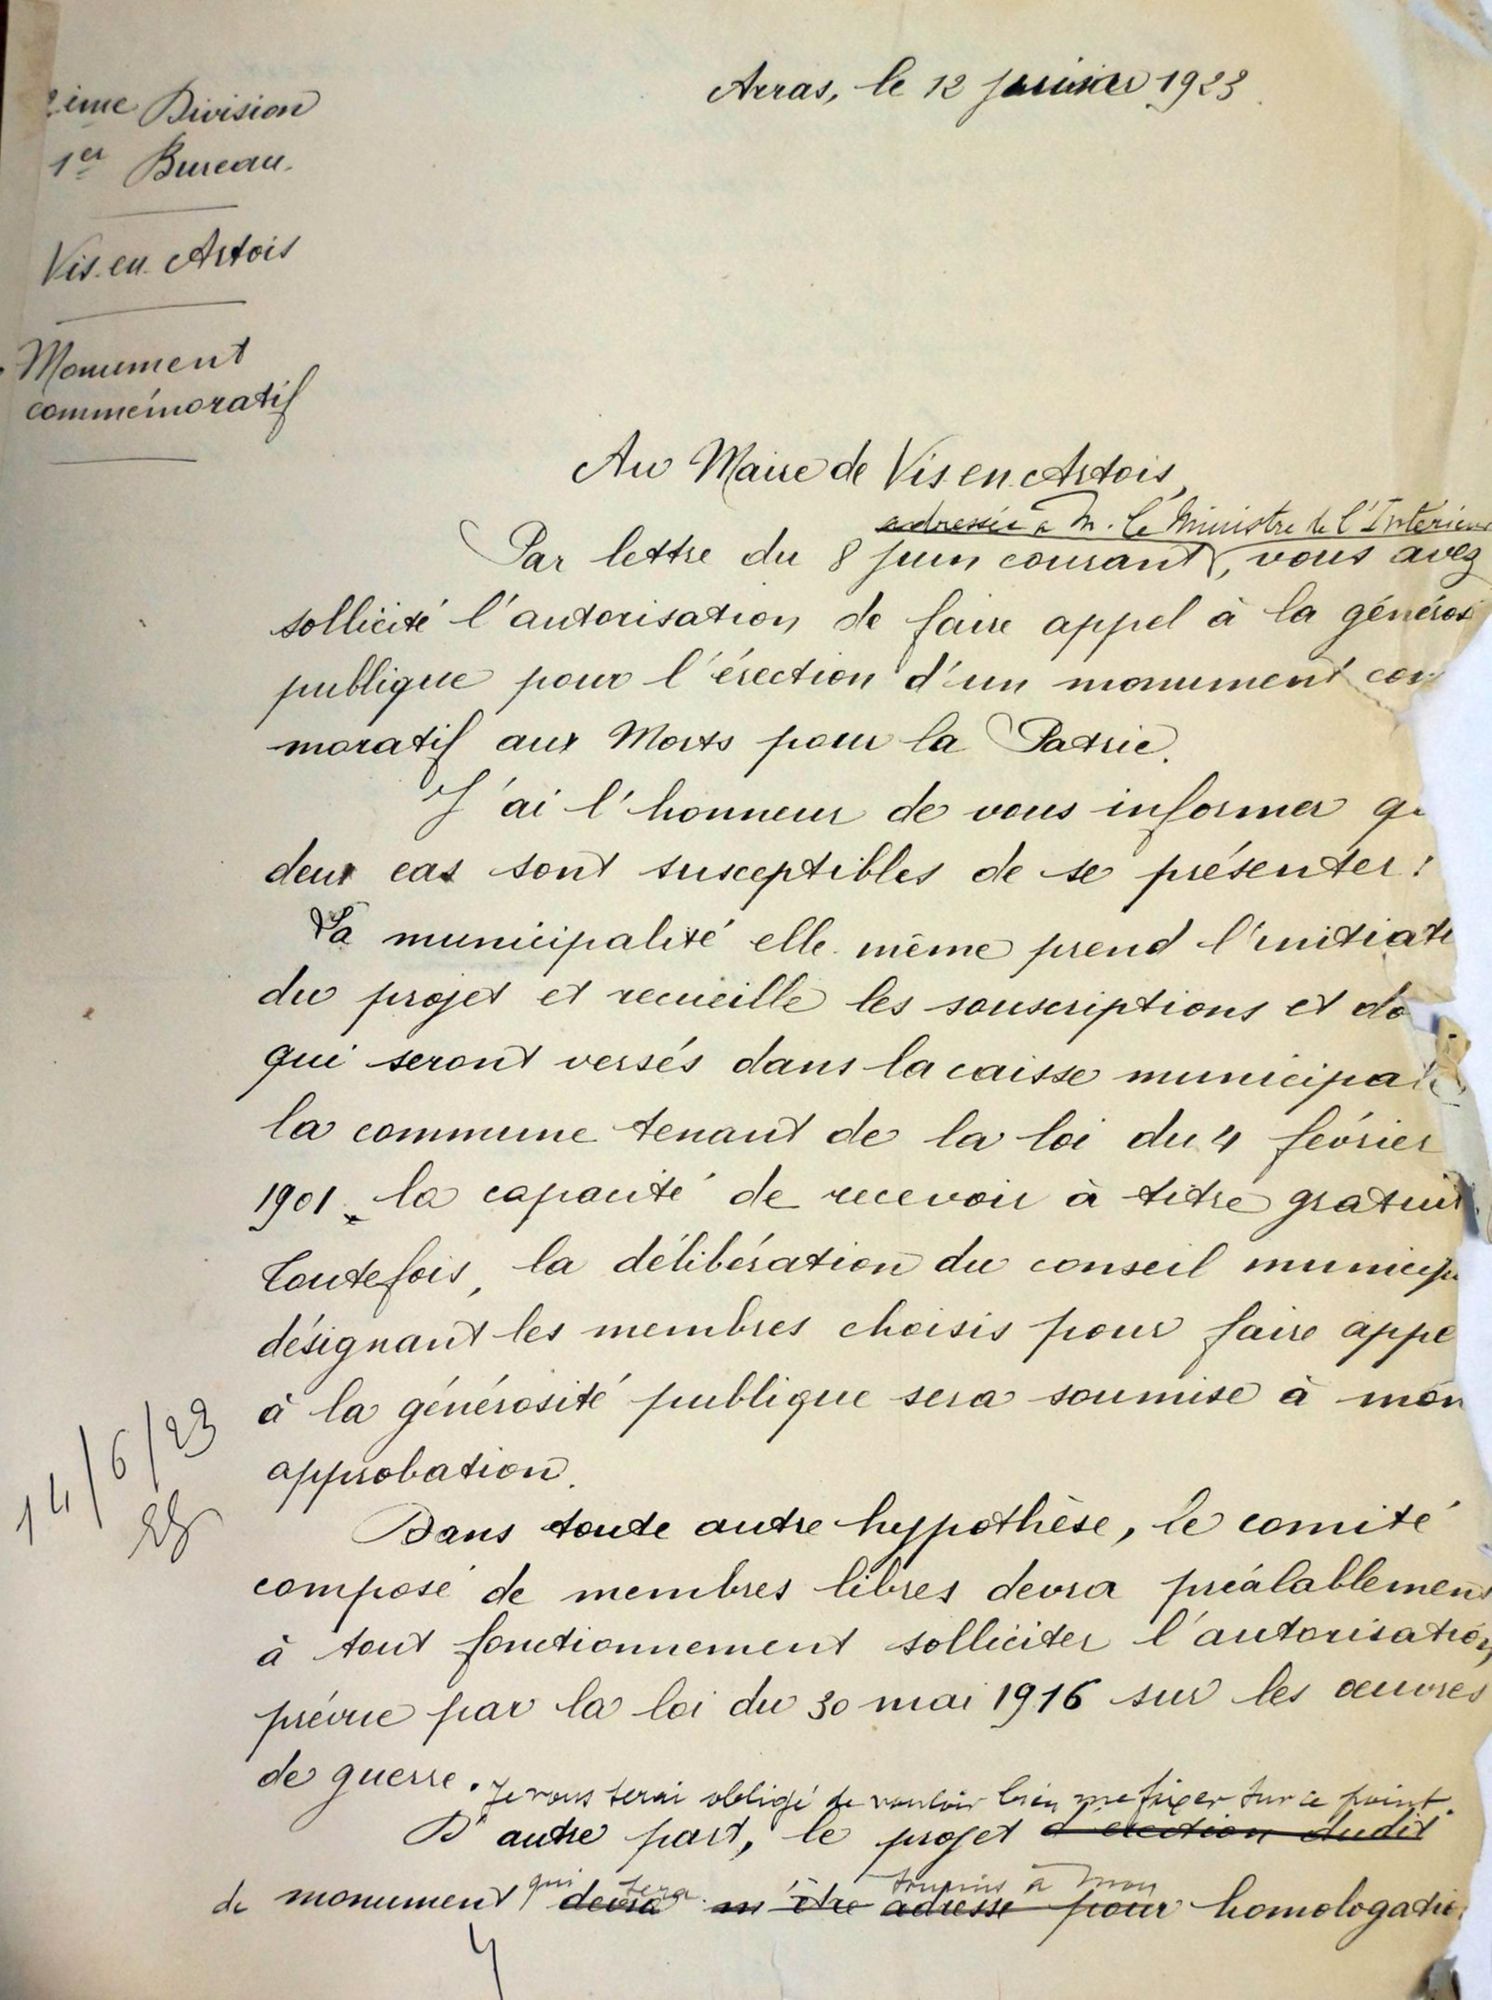 Arras, le 12 1923.
ième Division
1er Bureau.
Vis.en.Artois
Monument
commémoratif
Au Maire de Vis.en.Artois,
adressée à M. le Ministre de l'Intérieur
Par lettre du 8 juin courant, vous avez
sollicité l'autorisation de faire appel à la générosi
publique pour l'érection d'un monument com
moratif aux Morts pour la Patrie.
J'ai l'honneur de vous informer qu
deux cas sont susceptibles de se présenter :
La municipalité elle.même prend l'initiati
du projet et recueille les souscriptions et do
qui seront versés dans la caisse municipale
la commune tenant de la loi du 4 février
1901 la capacité de recevoir à titre gratuit.
Toutefois, la délibération du conseil municip
désignant les membres choisis pour faire appe
à la générosité publique sera soumise à mon
approbation.
14/6/23
Dans toute autre hypothèse, le comité
composé de membres libres devra préalablement
à tout fonctionnement solliciter l'autorisation
prévue par la loi du 30 mai 1916 sur les œuvres
de guerre. Je vous serai obligé de vouloir bien me fixer sur ce point.
D'autre part, le projet d'érection dudit
qui sera soumis à mon
de monument devra m'être adressé pour homologatio